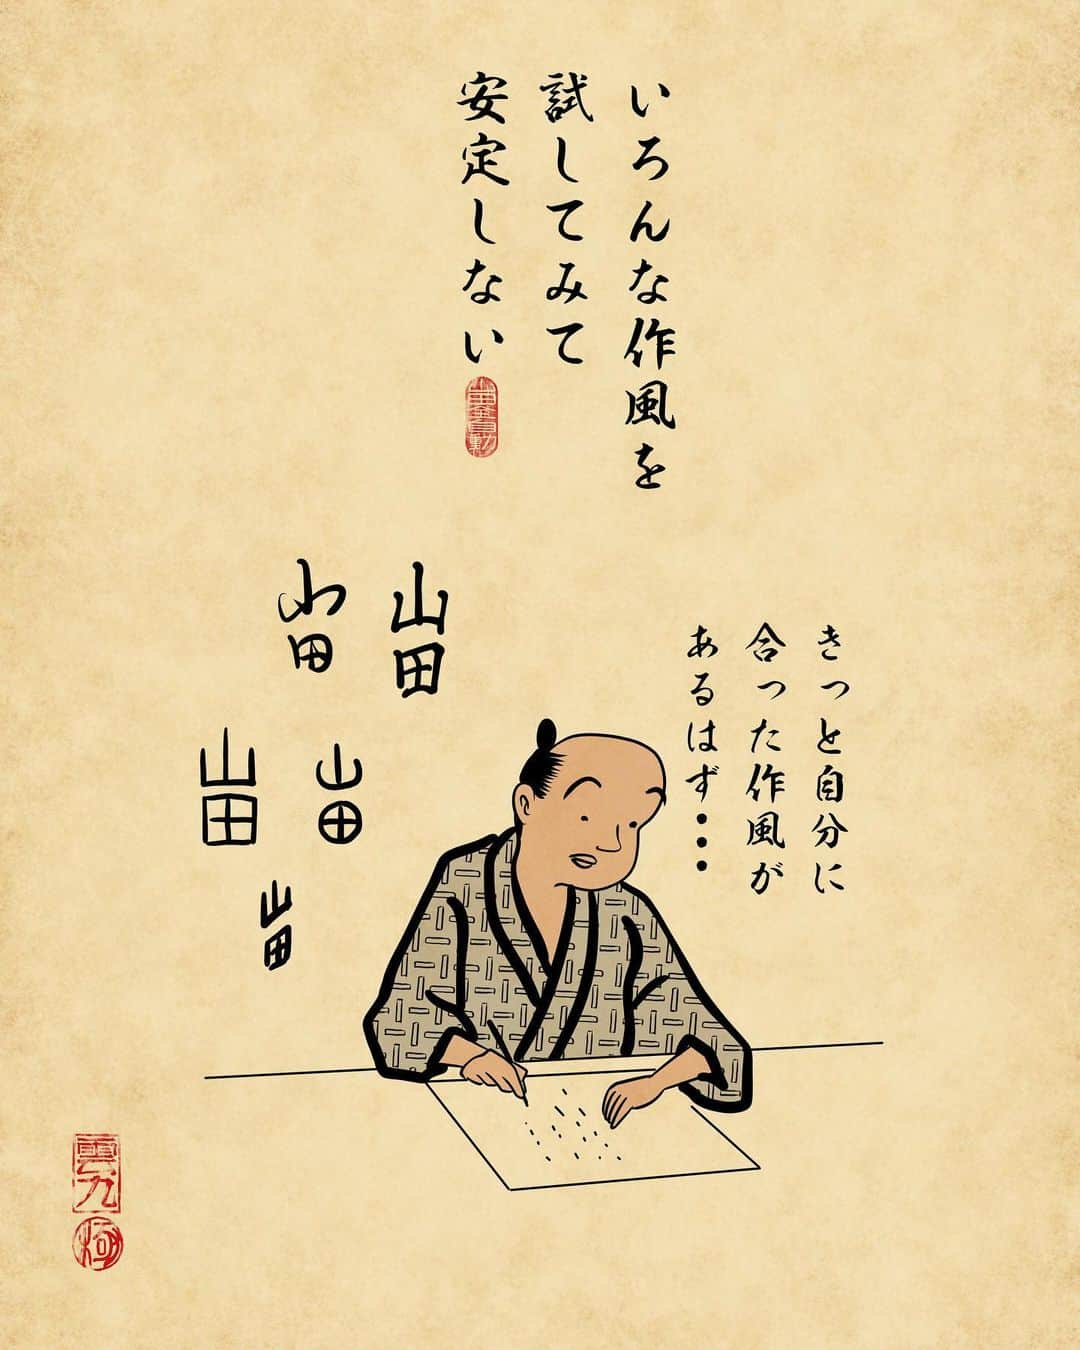 いろんな作風を
試してみて
安定しない
きっと自分に
合った作風が
あるはず・・・
山田
山田
山田
山田
山田